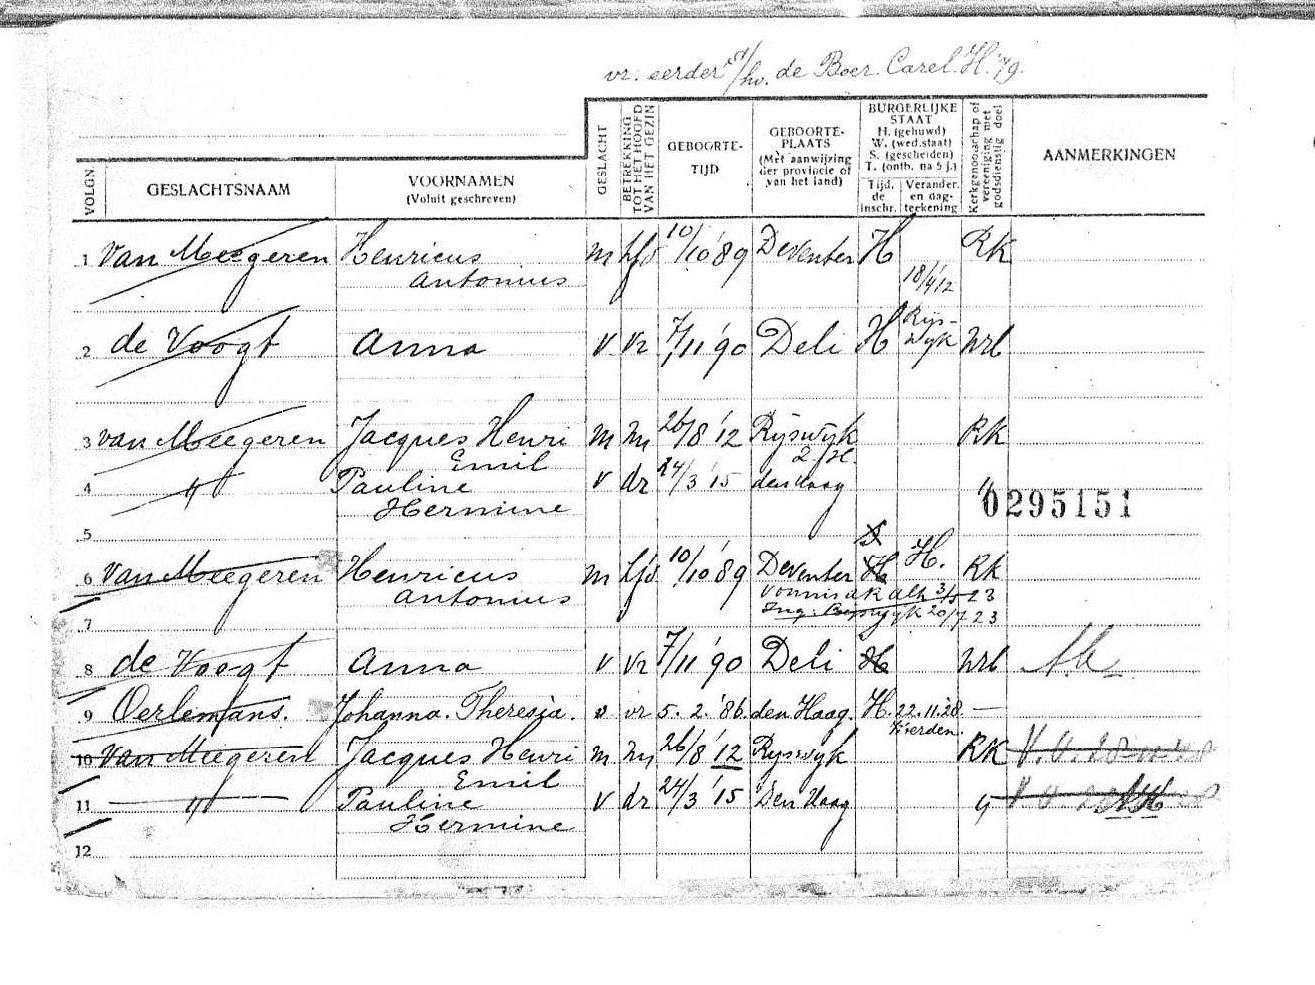 vr. eerder hv. de Boer. Carel. H. '79.
VOLGN.
GESLACHTSNAAM
VOORNAMEN
(Voluit geschreven)
GESLACHT
BETREKKING TOT HET HOOFD VAN HET GEZIN
GEBOORTE-
TIJD
GEBOORTE-
PLAATS
(Met aanwijzing
der provincie of
van het land)
BURGERLIJKE
STAAT
H. (gehuwd)
W. (wed.staat)
S. (gescheiden)
T. (ontb. na 5 j.)
Tijd.
de
inschr.
Verander.
en dag-
teekening
Kerkgenootschap of vereeniging met godsdienstig doel
AANMERKINGEN
1 van Meegeren Henricus m hfd 10/10 '89 Deventer H RK
Antonius 18/4 '12
Rijs-
2 de Voogt Anna v vr 7/11 '90 Deli H wyk
3 van Meegeren Jacques Henri m zn 26/8 '12 Ryswyk RK
Emil Z.H.
4 " Pauline v dr 24/3 '15 den Haag "
Hermine
0295151
5
6 van Meegeren Henricus m hfd 10/10 '89 Deventer H H. RK
Antonius Vonnis
20/7 23
7
8 de Voogt Anna v vr 7/11 '90 Deli H
9 Oerlemans. Johanna. Theresia. v vr 5. 2. '86. den Haag. H. 22.11.28. —
10 van Meegeren Jacques Henri m zn 26/8 '12 Ryswyk RK
Emil
11 " Pauline v dr 24/3 '15 Den Haag "
Hermine
12